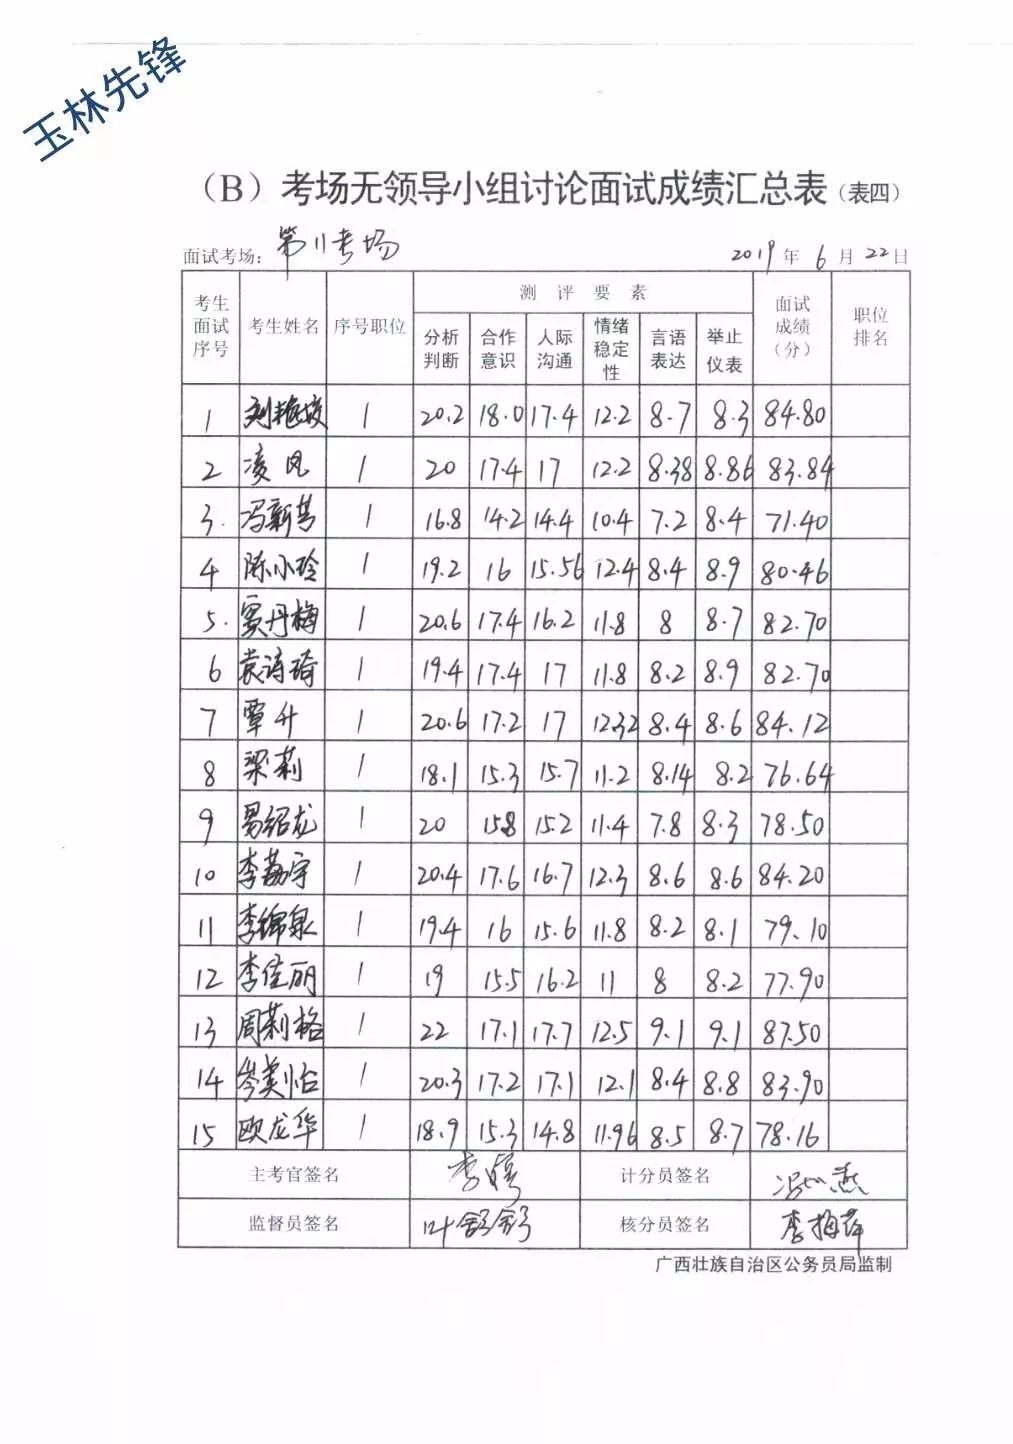 玉林先锋
（B）考场无领导小组讨论面试成绩汇总表（表四）
面试考场： 第11考场 2019年6月22日
考生面试序号 考生姓名 序号职位 测评要素 面试成绩（分） 职位排名
分析判断 合作意识 人际沟通 情绪稳定性 言语表达 举止仪表
1 刘艳姣 1 20.2 18.0 17.4 12.2 8.7 8.3 84.80
2 凌风 1 20 17.4 17 12.2 8.38 8.86 83.84
3. 冯新 1 16.8 14.2 14.4 10.4 7.2 8.4 71.40
4 陈小玲 1 19.2 16 15.56 12.4 8.4 8.9 80.46
5. 窦丹梅 1 20.6 17.4 16.2 11.8 8 8.7 82.70
6 袁诗琦 1 19.4 17.4 17 11.8 8.2 8.9 82.70
7 覃升 1 20.6 17.2 17 12.32 8.4 8.6 84.12
8 梁莉 1 18.1 15.3 15.7 11.2 8.14 8.2 76.64
9 易绍龙 1 20 15.8 15.2 11.4 7.8 8.3 78.50
10 李荔宇 1 20.4 17.6 16.7 12.3 8.6 8.6 84.20
11 李锦泉 1 19.4 16 15.6 11.8 8.2 8.1 79.10
12 李佳丽 1 19 15.5 16.2 11 8 8.2 77.90
13 周莉格 1 22 17.1 17.7 12.5 9.1 9.1 87.50
14 岑美怡 1 20.3 17.2 17.1 12.1 8.4 8.8 83.90
15 欧龙华 1 18.9 15.3 14.8 11.96 8.5 8.7 78.16
主考官签名 李婷 计分员签名
监督员签名 叶 核分员签名 李梅萍
广西壮族自治区公务员局监制